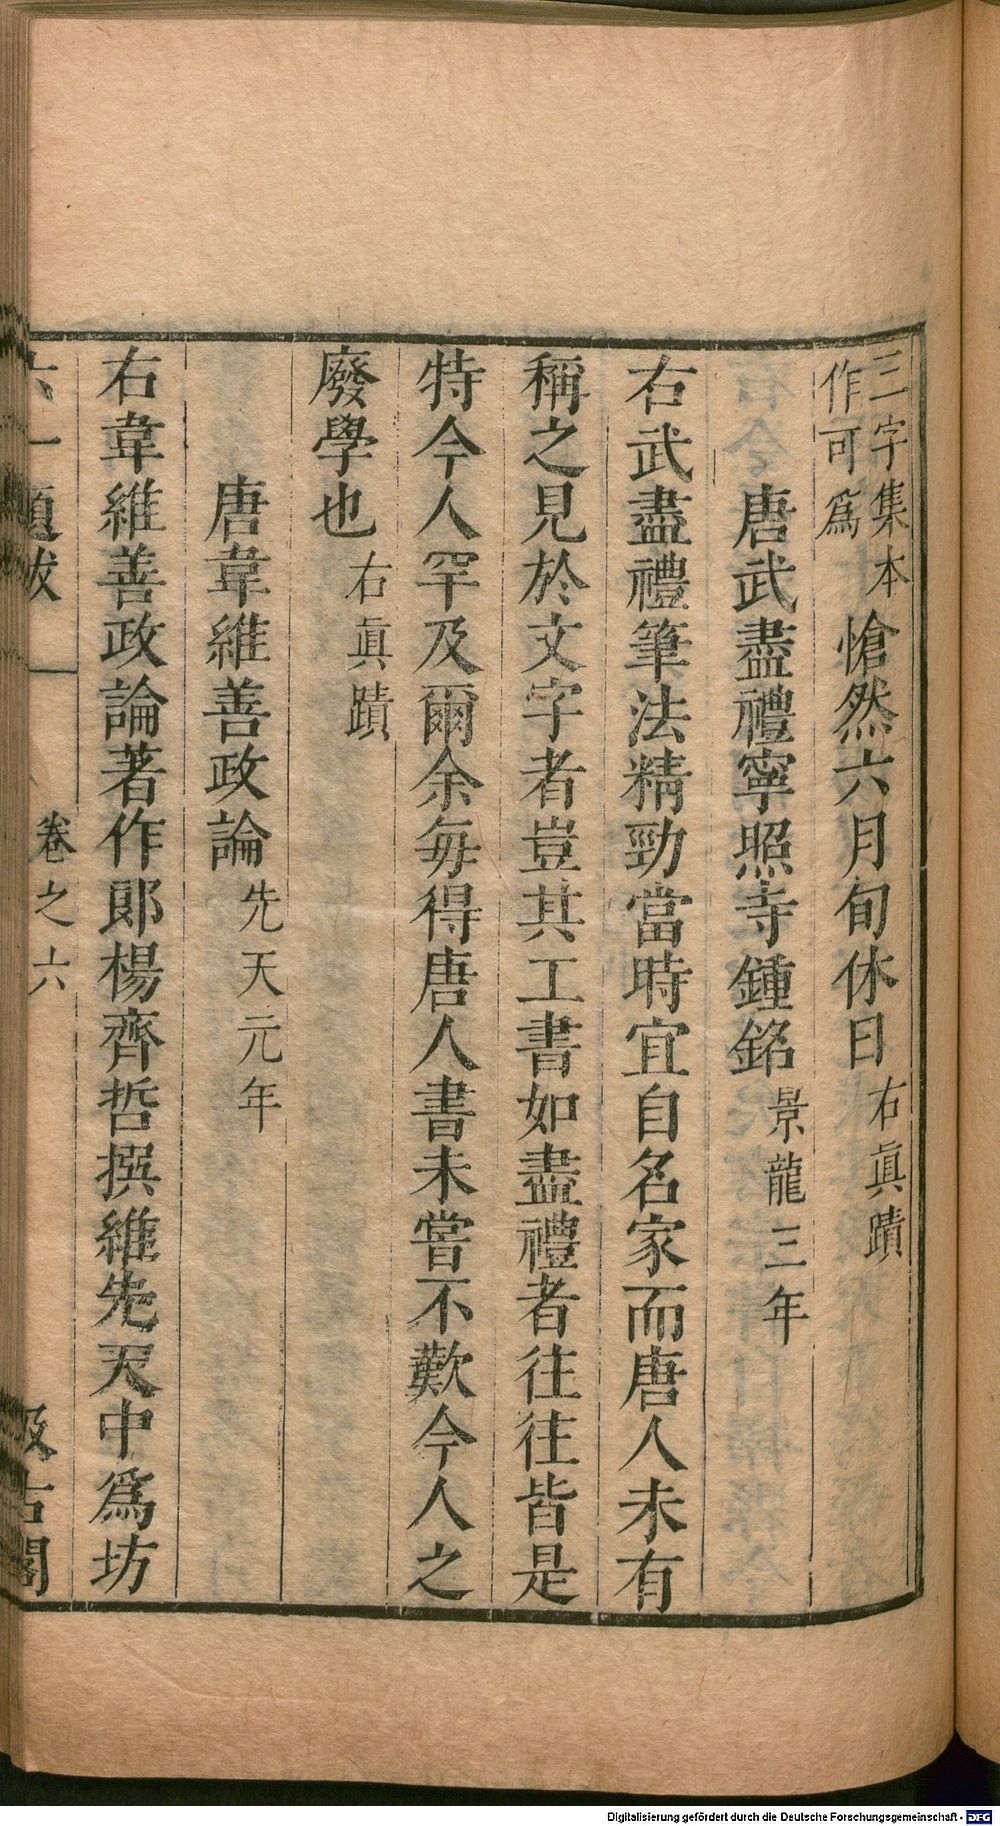 三字集本作可爲愴然六月旬休日右眞蹟
唐武盡禮寧照寺鍾銘景龍三年
右武盡禮筆法精勁當時宜自名家而唐人未有
稱之見於文字者豈其工書如盡禮者往往皆是
特今人罕及爾余每得唐人書未嘗不歎今人之
廢學也右眞蹟
唐韋維善政論先天元年
右韋維善政論著作郎楊齊哲撰維先天中爲坊
六一題跋 卷之六 汲古閣
Digitalisierung gefördert durch die Deutsche Forschungsgemeinschaft - DFG